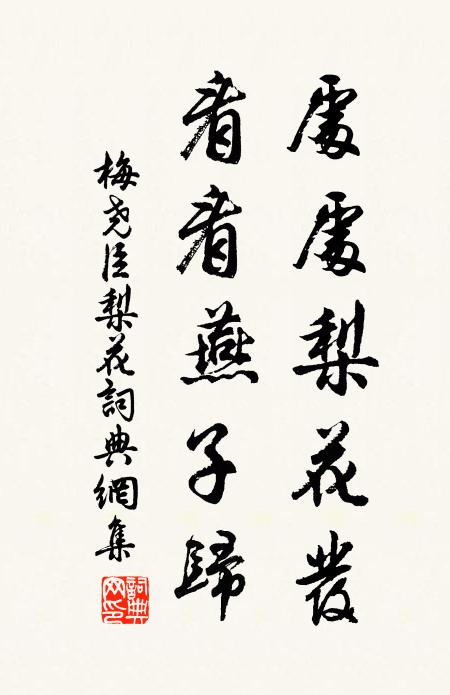 處處梨花發
看看燕子歸
梅尧臣梨花詞典網集
詞典网印